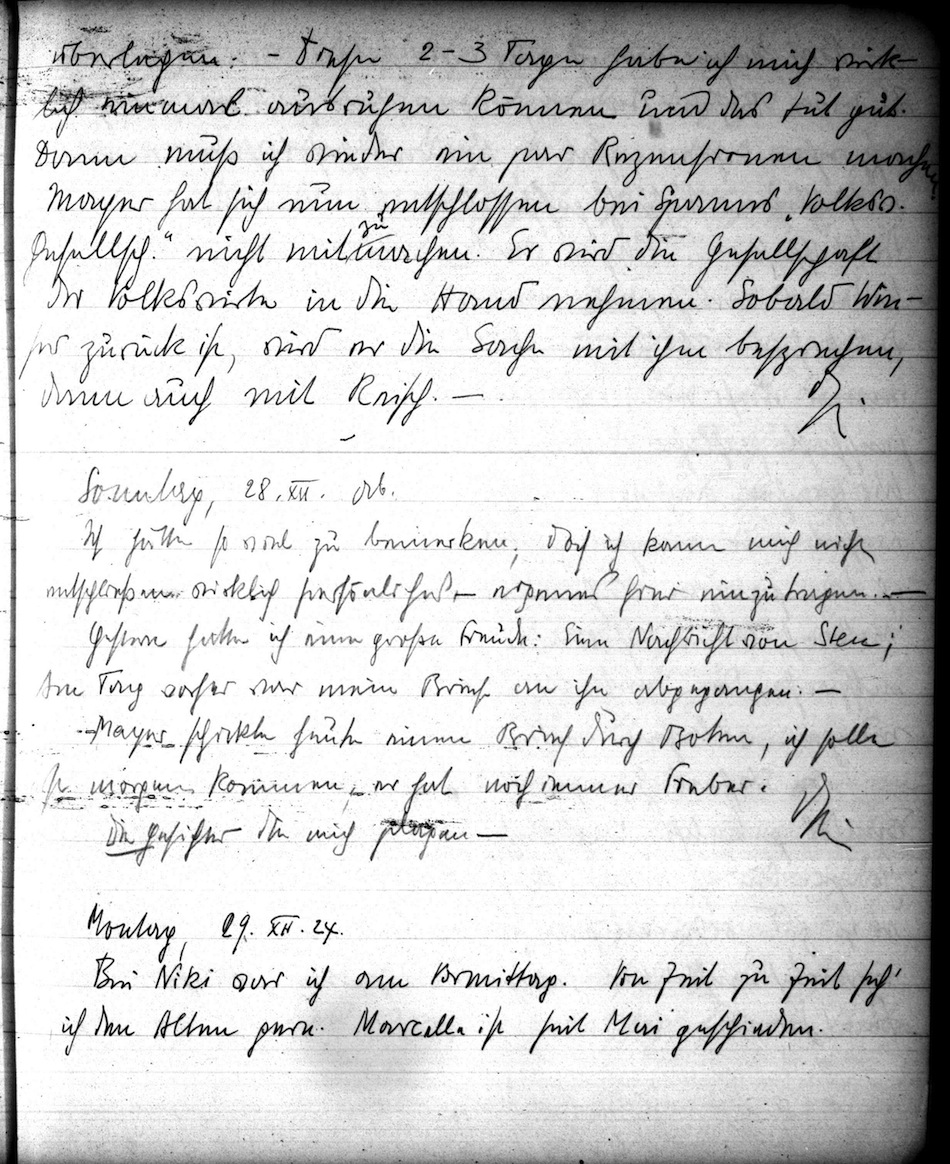 überlegen. – Diese 2–3 Tage habe ich mich wirk-
lich einmal ausruhen können und das tut gut.
Dann muß ich wieder ein par Rezensionen machen.
Mayer hat sich nun entschlossen bei Spanns „Volksw.
Gesellsch.“ nicht mitzumachen. Er wird die Gesellschaft
der Volkswirte in die Hand nehmen. Sobald Wie-
ser zurück ist, wird er die Sache mit ihm besprechen,
dann auch mit Reisch. —
Sonntag, 28. XII. Ab.
Ich hätte so viel zu bemerken, doch ich kann mich nicht
entschließen wirklich persönliches – eigenes hier einzutragen. —
Gestern hatte ich eine große Freude: Eine Nachricht von Sten;
Am Tag vorher war mein Brief an ihn abgegangen. —
Mayer schickte heute einen Brief durch Boten, ich solle
ja morgen kommen, er hat noch immer Fieber.
Die Gesichter die mich plagen —
Montag, 29. XII. 24.
Bei Niki war ich am Vormittag. Von Zeit zu Zeit seh'
ich den Alten gern. Marcella ist seit Mai geschieden.